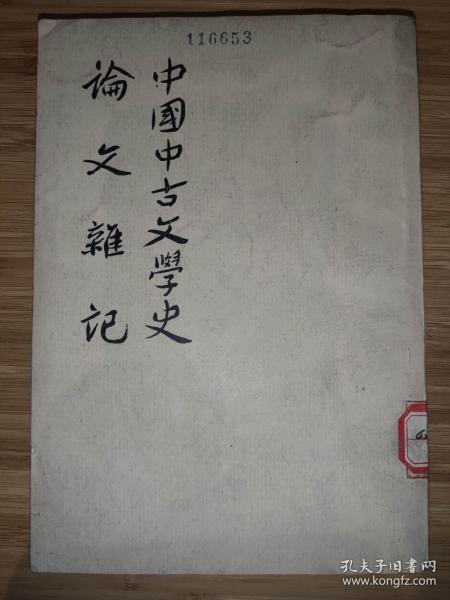 116653
中國中古文學史
論文雜記
孔夫子旧书网
www.kongfz.com